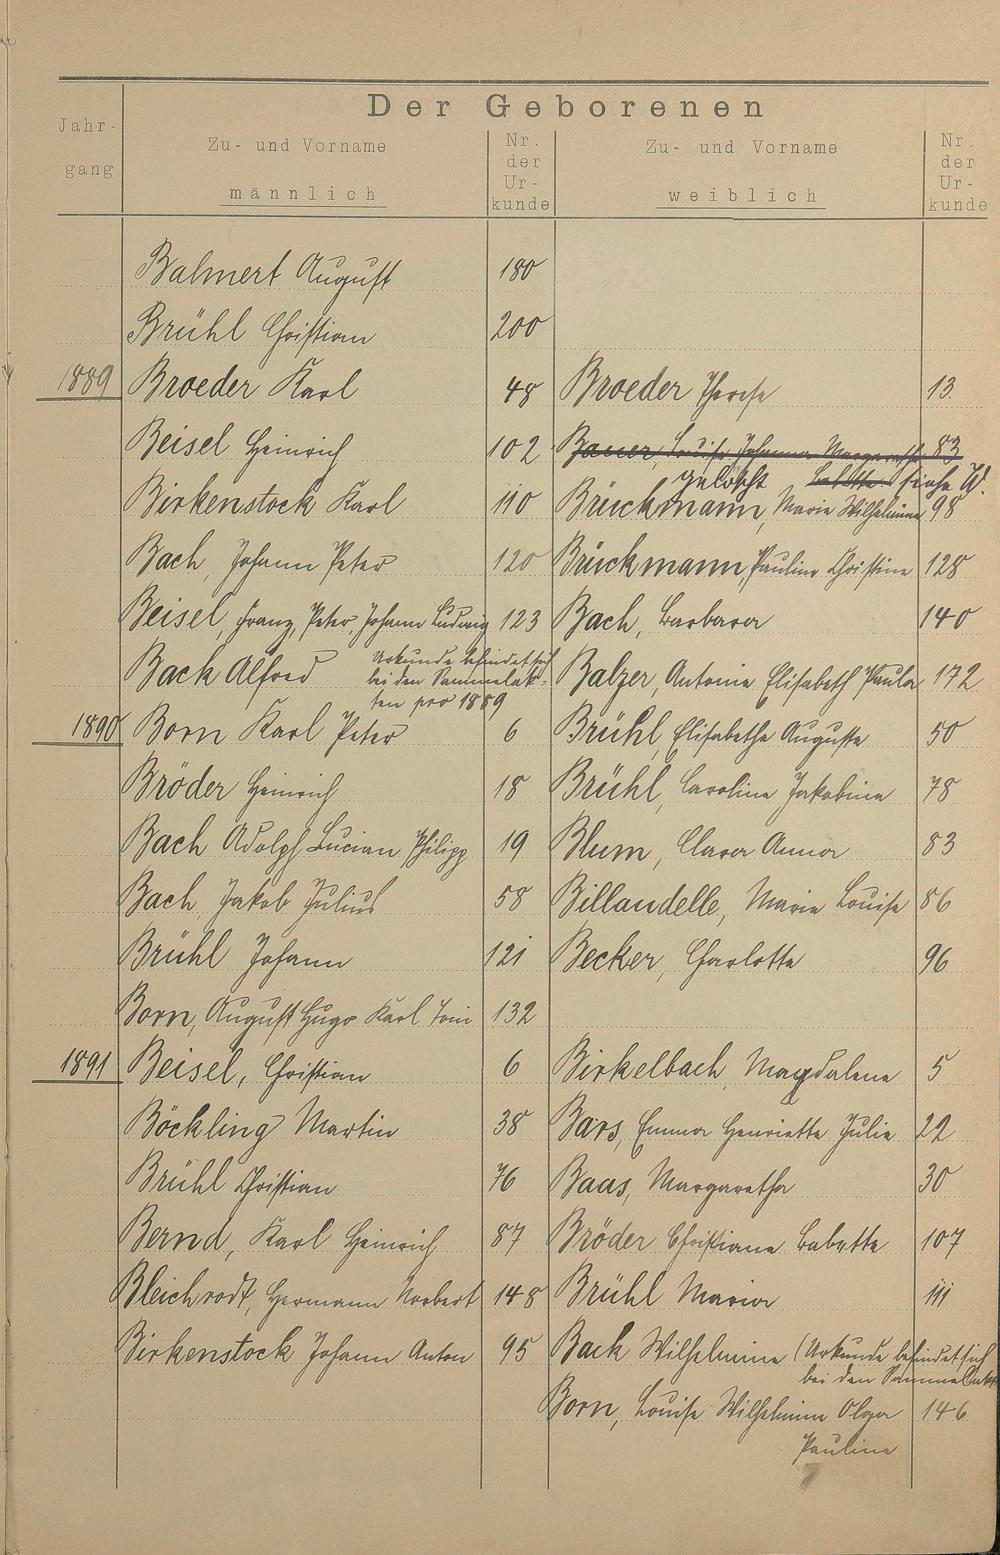 Der Geborenen
Jahr-
gang
Zu- und Vorname
männlich
Nr.
der
Ur-
kunde
Zu- und Vorname
weiblich
Nr.
der
Ur-
kunde
Balmert August 180
Brühl Christian 200
1889 Broeder Karl 48 Broeder Therese 13.
Beisel Heinrich 102 Bauer, Louise Johanna Margarethe 83
gelöscht Babette siehe W.
Birkenstock Karl 110 Brückmann, Marie Wilhelmine 98
Bach, Johann Peter 120 Brückmann, Pauline Christine 128
Beisel, Franz, Peter, Johann Ludwig 123 Bach, Barbara 140
Back Alfred Urkunde befindet sich
bei den Sammelak- Balzer, Antonie Elisabeth Paula 172
ten pro 1889
1890 Born Karl Peter 6 Brühl, Elisabethe Auguste 50
Bröder Heinrich 18 Brühl, Caroline Jakobine 78
Bach Adolph Lucian Philipp 19 Blum, Clara Anna 83
Bach, Jakob Julius 58 Billaudelle, Marie Louise 86
Brühl Johann 121 Becker, Charlotte 96
Born, August Hugo Karl Toni 132
1891 Beisel, Christian 6 Birkelbach, Magdalene 5
Böckling Martin 38 Bars, Emma Henriette Julie 22
Brühl Christian 76 Baas, Margaretha 30
Bernd, Karl Heinrich 87 Bröder Christiane Babette 107
Bleichrodt, Hermann Norbert 148 Brühl Maria 111
Birkenstock Johann Anton 95 Back Wilhelmine (Urkunde befindet sich
bei den Sammelakten
Born, Louise Wilhelmine Olga 146
Pauline